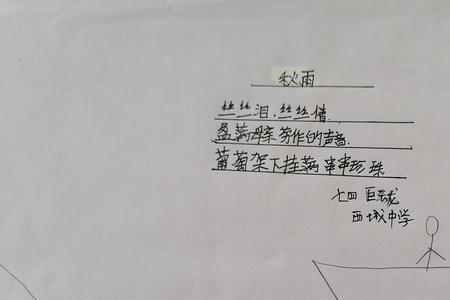 秋雨
丝丝泪.丝丝情
盈满母亲劳作的声音.
葡萄架下挂满串串珍珠
七四 巨龙
西城中学